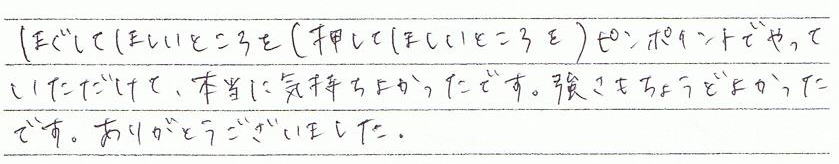 ほぐしてほしいところを(押してほしいところを)ピンポイントでやって
いただけて、本当に気持ちよかったです。強さもちょうどよかった
です。ありがとうございました.